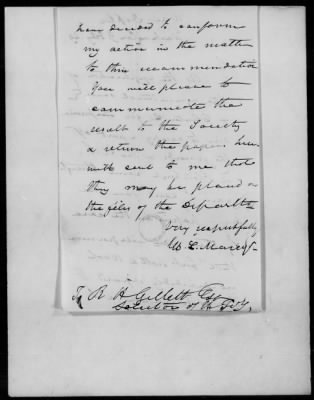 have decided to conform
my action in the matter
to their recommendation
you will please to
communicate the
result to the Society
& return the papers here-
with sent to me that
they may be placed on
the files of the Departt
Very respectfully
W. L. Marcy
To R H Gillett Esq
Solicitor of the Try.